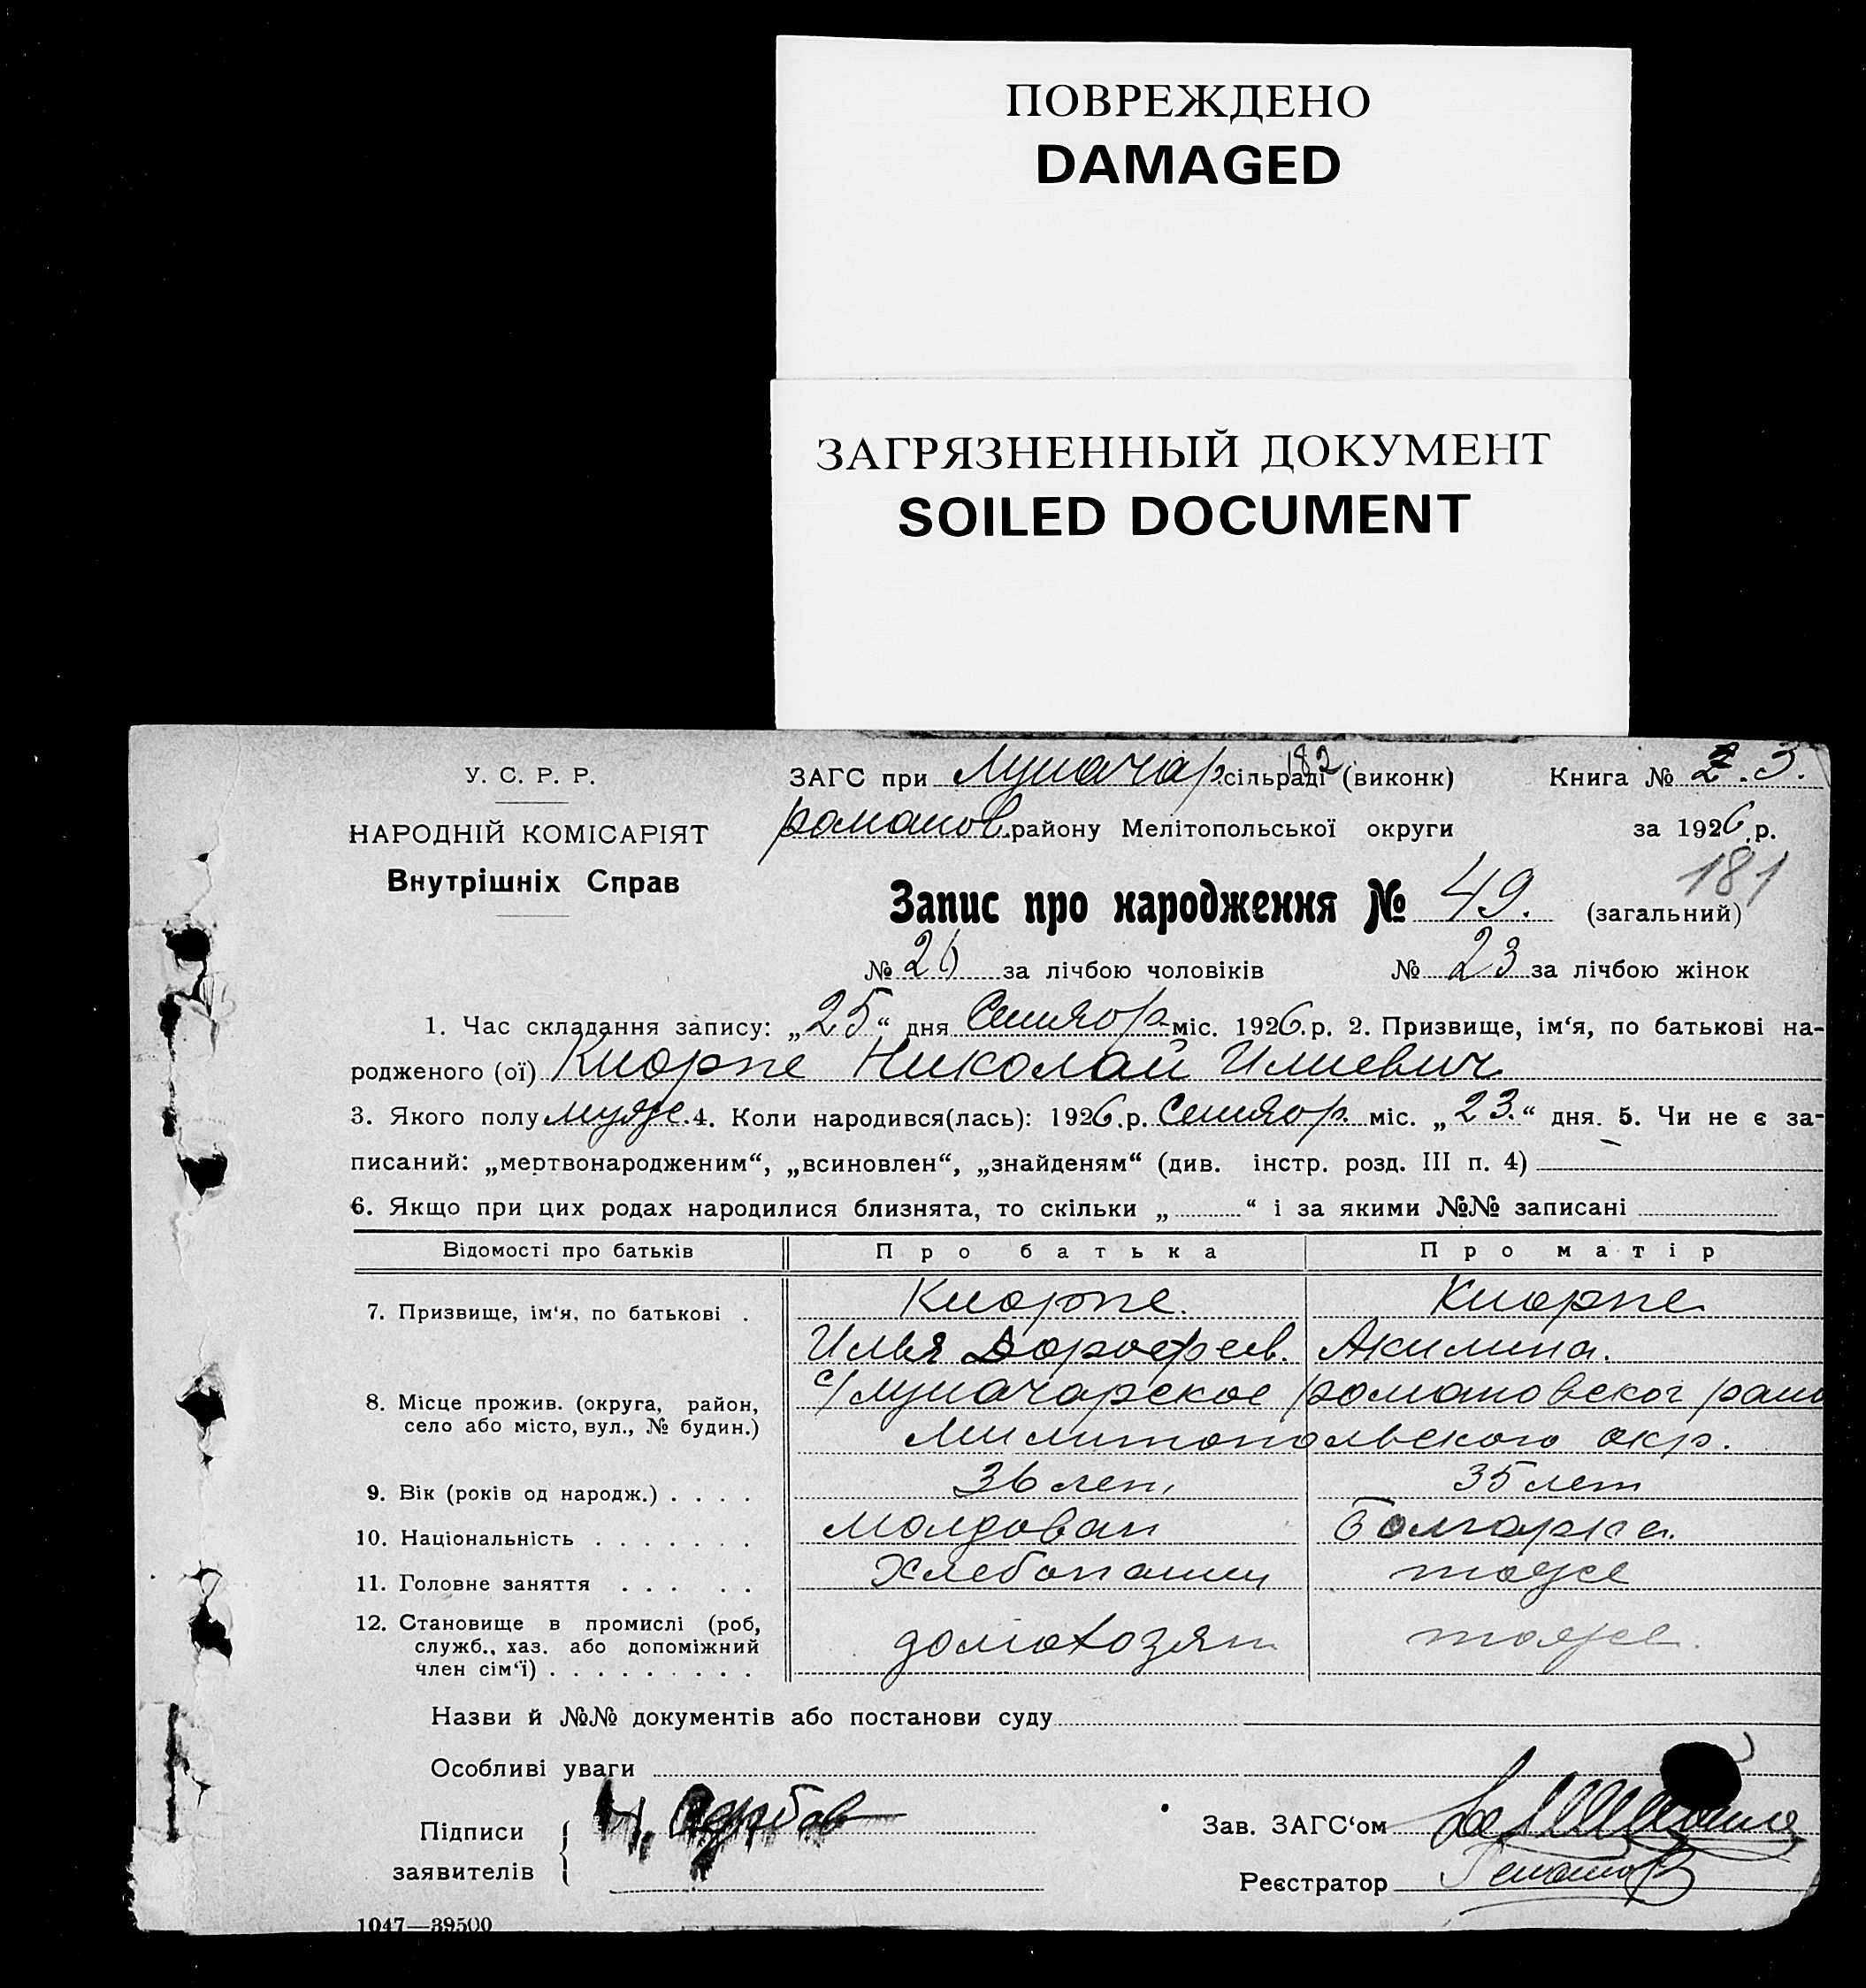 ПОВРЕЖДЕНО
DAMAGED
ЗАГРЯЗНЕННЫЙ ДОКУМЕНТ
SOILED DOCUMENT
У. С. Р. Р.
НАРОДНІЙ КОМІСАРІЯТ
Внутрішніх Справ
182
ЗАГС при Луначар. сільраді (виконк) Книга № 2. 3.
романов. району Мелітопольської округи за 1926 р.
181
Запис про народження № 49. (загальний)
№ 26 за лічбою чоловіків № 23 за лічбою жінок
1. Час складання запису: „25“ дня Сентябр. міс. 1926. р. 2. Призвище, ім‘я, по батькові на-
родженого (ої) Киорпе Николай Илиевич
3. Якого полу муже. 4. Коли народився(лась): 1926. р. Сентябр. міс. „23.“ дня. 5. Чи не є за-
писаний: „мертвонародженим“, „всиновлен“, „знайденям“ (див. інстр. розд. III п. 4)
6. Якщо при цих родах народилися близнята, то скільки „ “ і за якими №№ записані
Відомості про батьків Про батька Про матір
7. Призвище, ім‘я, по батькові . Киорпе. Киорпе
Илья Дорофеев. Акилина.
8. Місце прожив. (округа, район, село або місто, вул., № будин.) с/Луначарское романовског раи
Милитопольского окр.
9. Вік (років од народж.) . . . . 36 лет, 35 лет
10. Національність . . . . . . . Молдован Болгарка.
11. Головне заняття . . . . . Хлебопашец тоже
12. Становище в промислі (роб, служб., хаз. або допоміжний член сім‘ї) . . . . . . . . . домохозяин тоже.
Назви й №№ документів або постанови суду
Особливі уваги
Підписи
заявителів
Зав. ЗАГС‘ом
Реєстратор
1047—39500